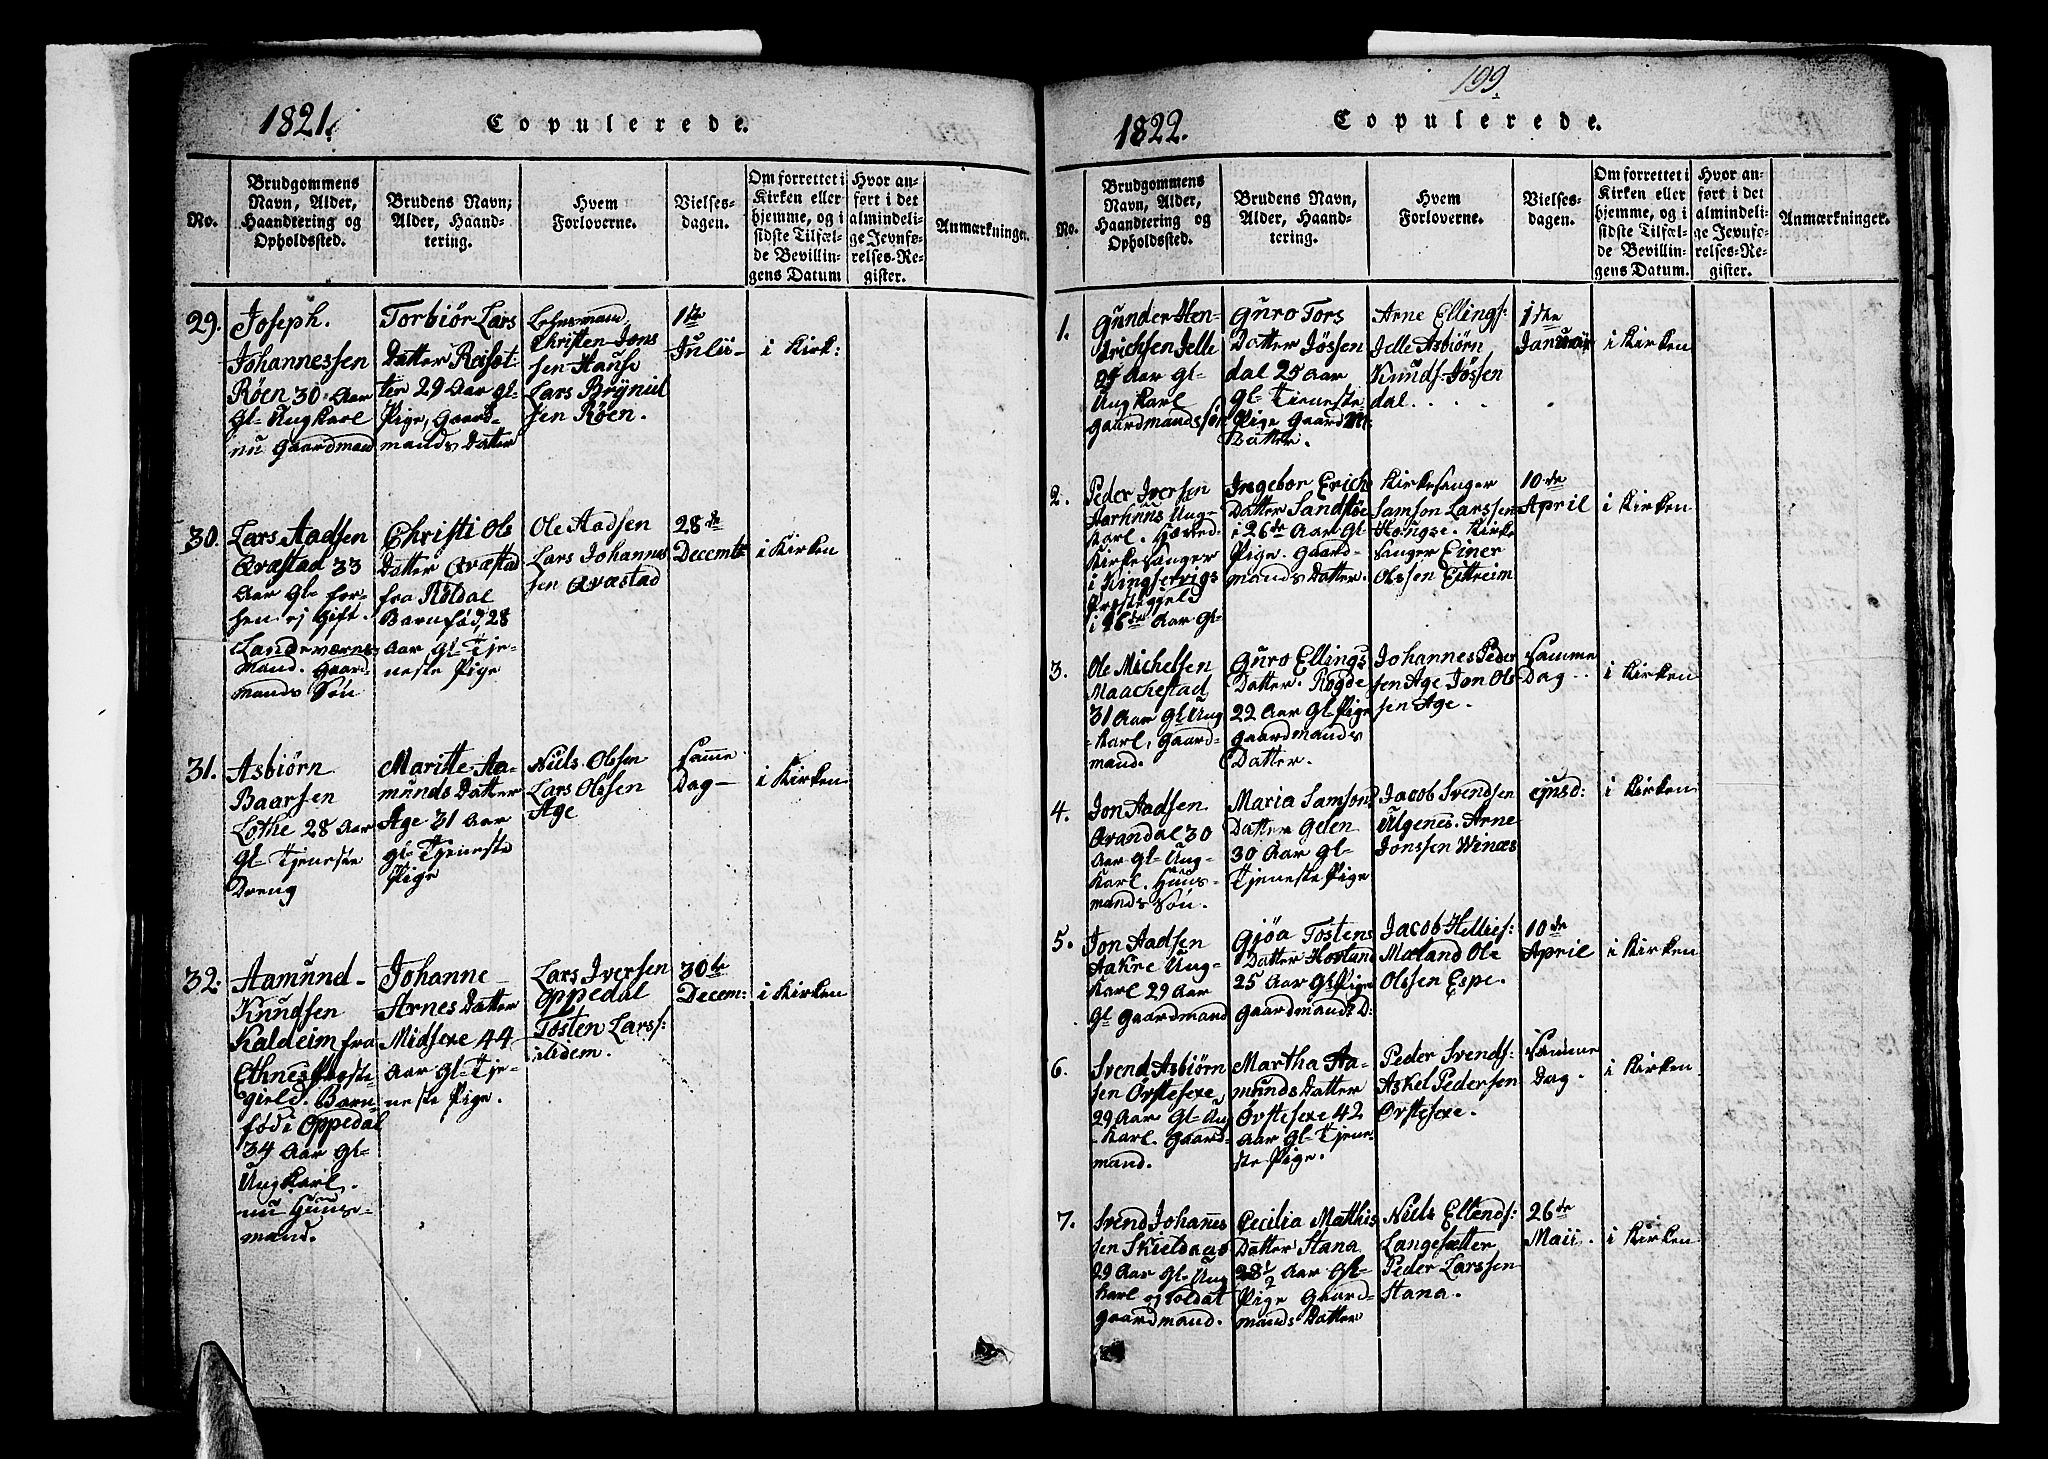 1821.
Copulerede.
No.
Brudgommens
Navn, Alder,
Haandtering og
Opholdssted.
Brudens Navn,
Alder, Haand-
tering.
Hvem
Forloverne.
Vielses-
dagen.
Om forrettet i
Kirken eller
hjemme, og i
sidste Tilfæl-
de Bevillin-
gens Datum
Hvor an-
ført i det
almindeli-
ge Jevnfø-
relses-Re-
gister.
Anmærkninger.
29.
Joseph.
Johannessen
Røen 30 Aar
Gl- Ungkarl
nu Gaardmand
Torbiör Lars
Datter Reisæt-
ter 29 Aar gl-
Pige, Gaard-
mands Datter
Lehnsmand
Christen Jons
sen Hause
Lars Bryniul
sen Røen.
1te
Julii-
i Kirk:
30.
Lars Aadsen
Qvæstad 33
Aar Gl- for-
hen ej Gift.
Landeværns-
mand. Gaard-
mands Søn
Christi Ols
Datter Qvæstad
fra Röldal
Barnfød, 28
Aar gl- Tje-
neste Pige
Ole Aadsen
Lars Johannes
sen Qvæstad
28de
Decembr
i Kirken
31.
Asbiørn
Baarsen
Lothe 28 Aar
Gl- Tjeneste
Dreng
Maritte Aa-
munds Datter
Age 31 Aar
gl- Tjeneste
Pige
Niels Olssen
Lars Olssen
Age
Samme
Dag-
i Kirken
32.
Aamund-
Knudsen
Kaldeim fra
Ethnes Præste
gield. Barn
fød i Oppedal
34 Aar Gl-
Ungkarl.
nu Huus-
mand.
Johanne
Arnes Datter
Midsexe 44
Aar Gl- Tje-
neste Pige.
Lars Iversen
Oppedal
Tosten Larss:
ibidem.
30te
Decem:
i Kirken
199
1822.
Copulerede.
No.
Brudgommens
Navn, Alder,
Haandtering og
Opholdssted.
Brudens Navn,
Alder, Haand-
tering.
Hvem
Forloverne.
Vielses-
dagen.
Om forrettet i
Kirken eller
hjemme, og i
sidste Tilfæl-
de Bevillin-
gens Datum.
Hvor an-
ført i det
almindeli-
ge Jevnfø-
relses-Re-
gister.
Anmærkninger.
1.
Gunder Hen-
drichsen Jelle
Aar gl-
Ungkarl
Gaardmandssøn
Guro Tors
Datter Jössen
dal 25 Aar
gl- Tjeneste
Pige Gaardm:
Datter.
Arne Ellings:
Jelle Asbiörn
Knuds: Jössen
dal.
1ste
Januar
i Kirken
2.
Peder Iversen
Aarhuus Ung-
karl.
Kirkesanger
i Kingservigs
Præstegjeld
i 26de Aar Gl-
Ingebor Erich
Datter Sandstøe
i 26de Aar Gl
Pige. Gaard-
mands Datter.
Kirkesanger
Samson Larssen
Hougse. Kirke
sanger Einer
Olssen Eittreim
10de
April
i Kirken
3.
Ole Michelsen
Maachestad
31 Aar Gl Ung
karl, Gaard-
mand.
Guro Ellings
Datter. Rogde
22 Aar Gl- Pige
Gaardmands
Datter.
Johannes Peder
sen Age Jon Ols
sen Age.
Samme
Dag..
i Kirken
4.
Jon Aadsen
Qvandal 30
Aar Gl- Ung-
karl. Huus-
mands Søn.
Maria Samsons
Datter Gelen
30 Aar Gl-
Tjeneste Pige
Jacob Svendsen
Ulgenes. Arne
Jonssen Winæs
ejusd:
i Kirken
5.
Jon Aadsen
Aakre Ung-
karl 29 Aar
Gl Gaardmand
Gjöa Tostens
Datter Hovland
25 Aar Gl Pige
Gaardmands D:
Jacob Hellies:
Maland Ole
Olssen Espe.
10de
April
i Kirken
6.
Svend Asbiörn
sen Örstesexe
29 Aar Gl- Ung
karl. Gaard-
mand.
Martha Aa-
munds Datter
Örstesexe 42
Aar Gl- Tjene-
ste Pige.
Peder Svends:
Askel Pedersen
Örstesexe.
Samme
Dag.
i Kirken
7.
Svend Johannes
sen Skieldaas
29 Aar Gl- Ung
karl og Soldat
Gaardmand.
Cecilia Matthis
Datter Stana
28½ Aar Gl-
Pige Gaard-
mands Datter
Niels Ellends:
Langesætter
Peder Larssen
Stana.
26de
Maii.
i Kirken